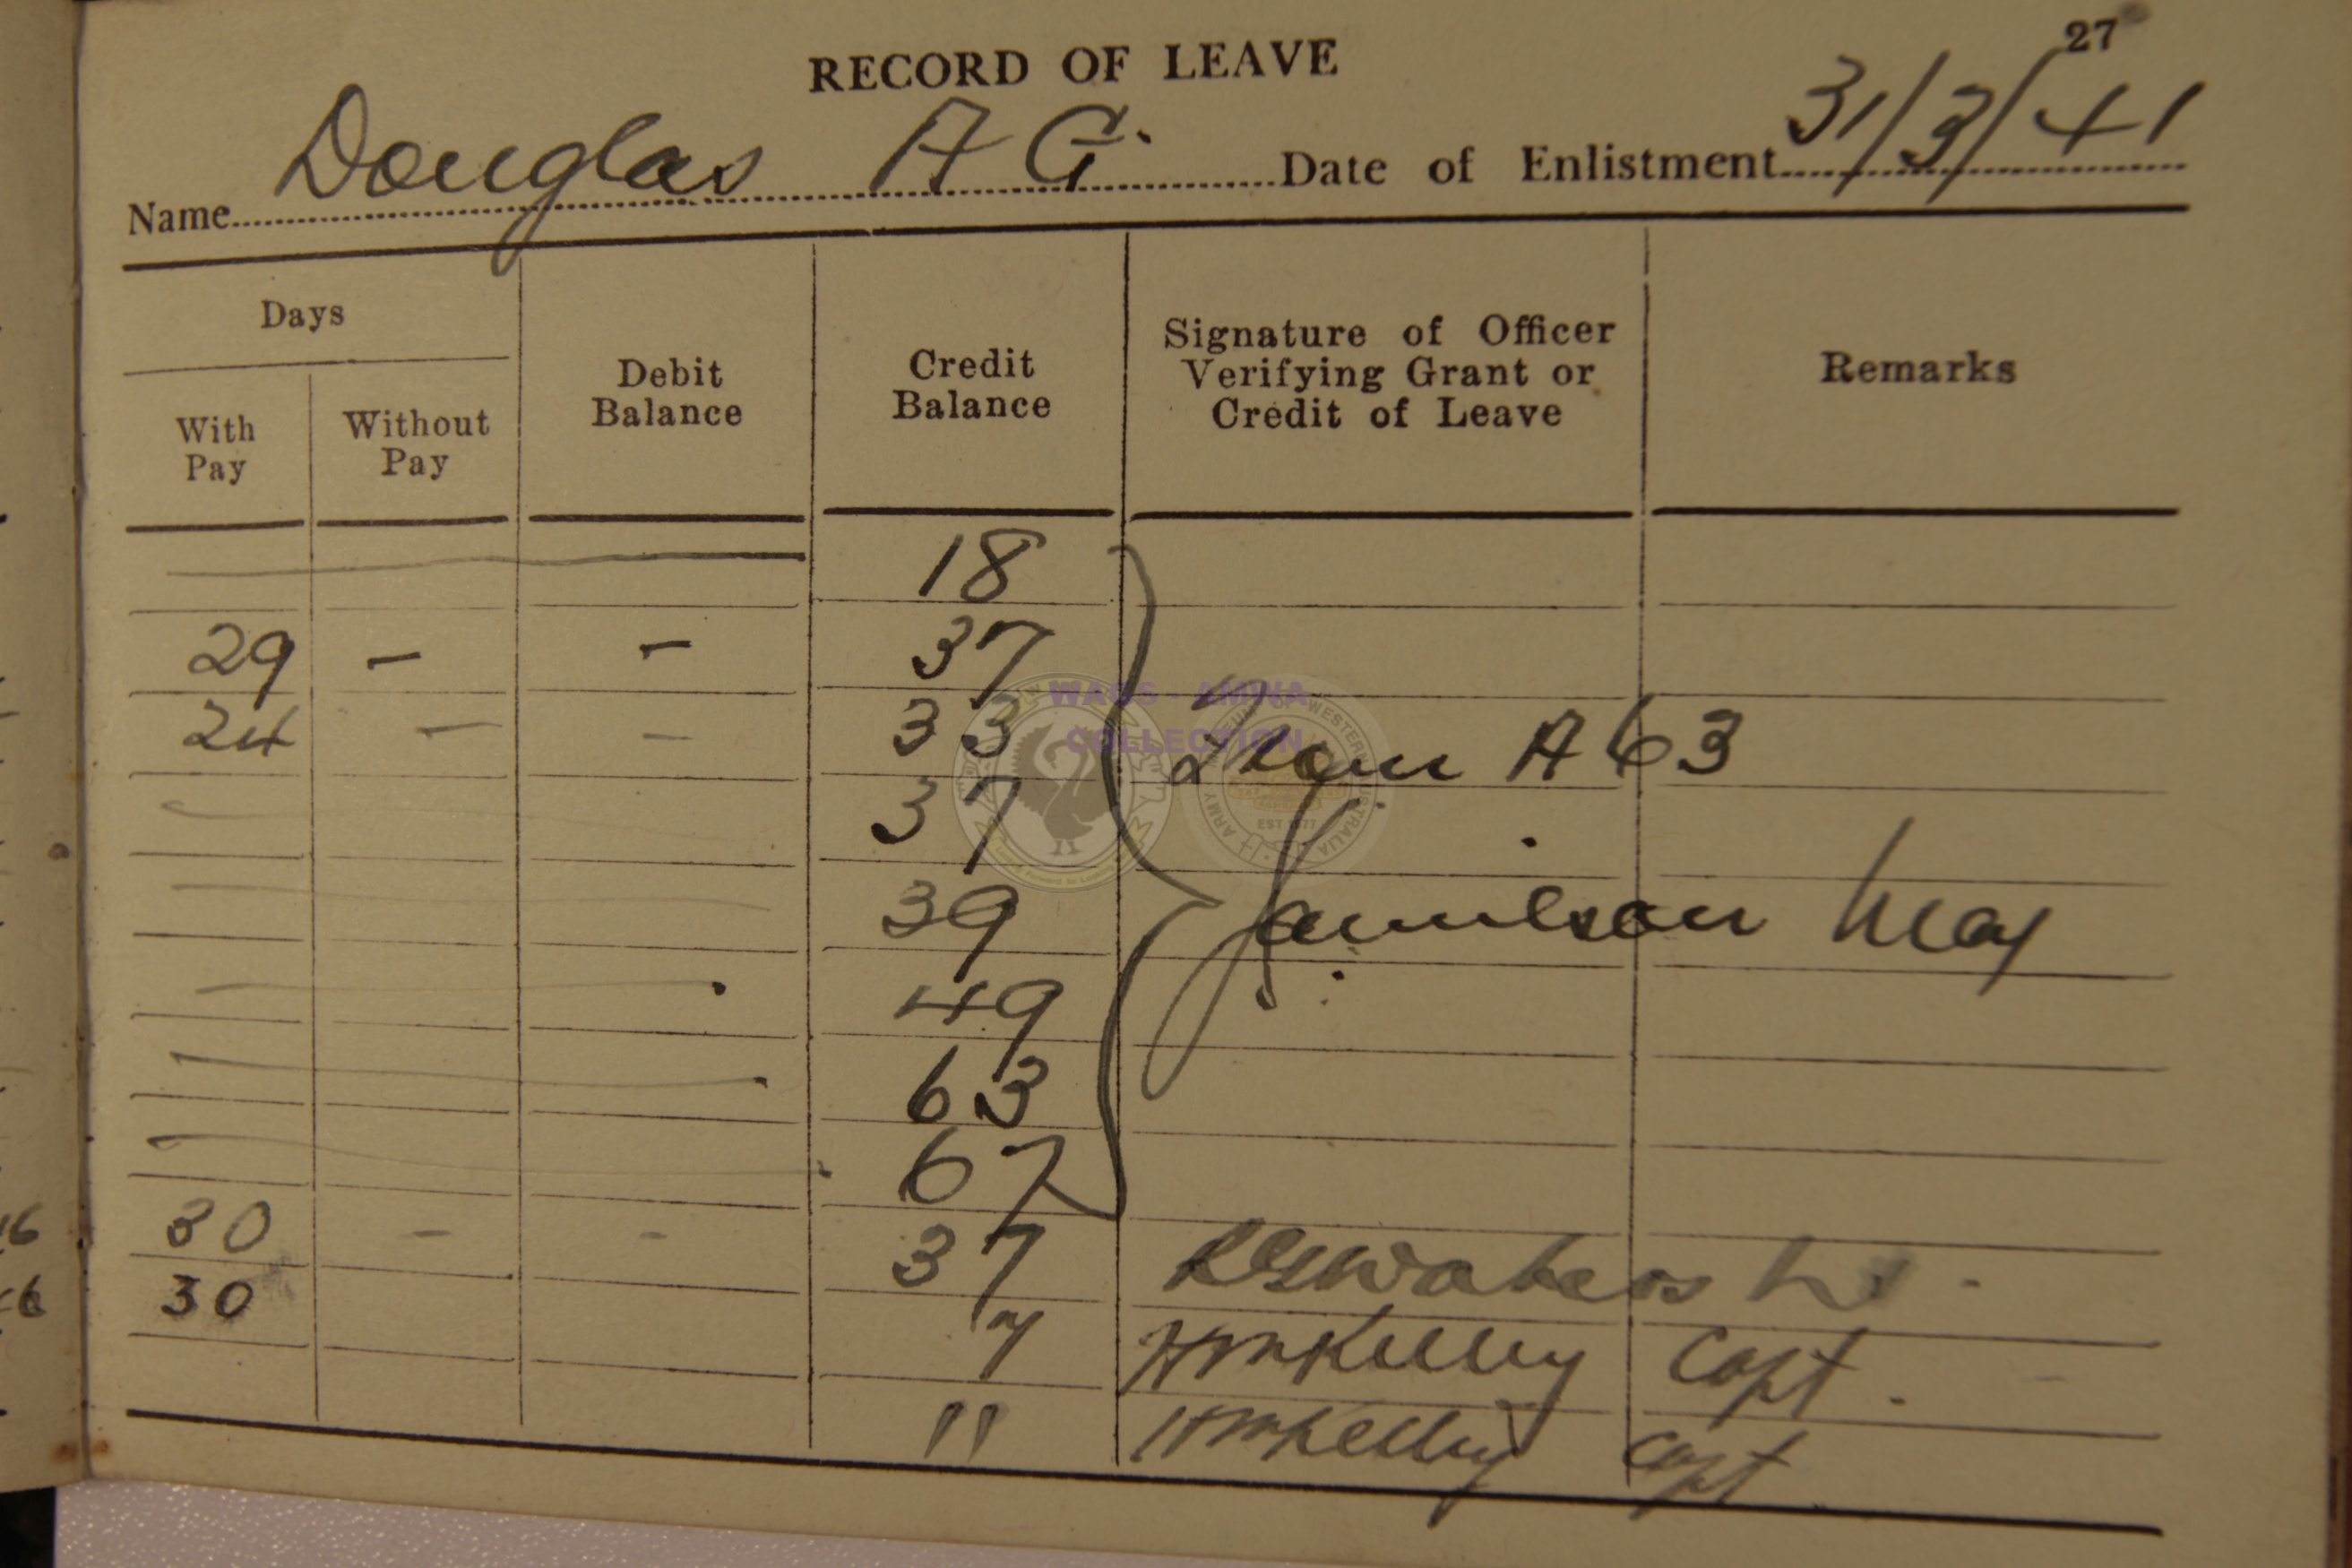 27
RECORD OF LEAVE
Name Douglas A G. Date of Enlistment 31/3/41
Days
With Pay
Without Pay
Debit Balance
Credit Balance
Signature of Officer
Verifying Grant or
Credit of Leave
Remarks
18
29 - - 37
24 - - 33
From A 63
37
39
Jamieson Maj
49
63
67
30 - - 37
30 7 HMKelly Capt.
11 HMKelly Capt
WAGS - AMWA
COLLECTION
ARMY MUSEUM OF WESTERN AUSTRALIA
EST 1977